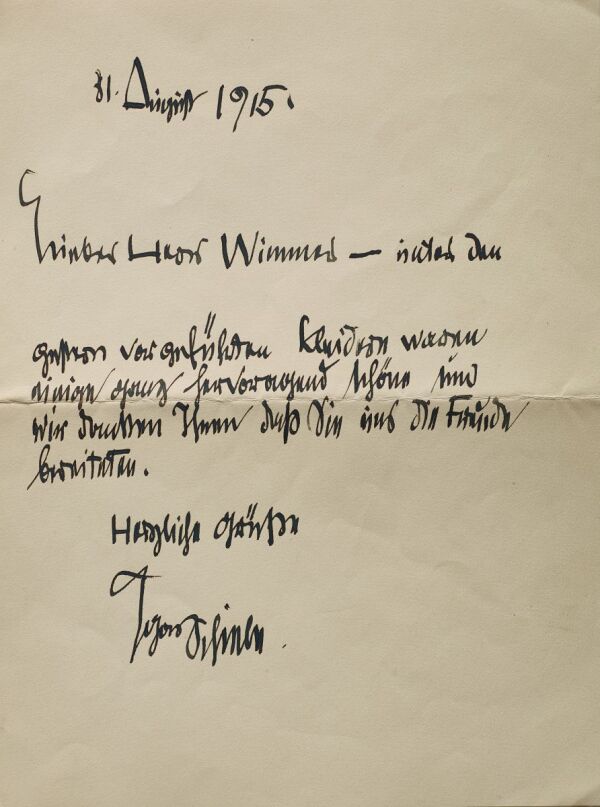 31. August 1915.
Lieber Herr Wimmer — unter den
gestern vorgeführten Kleidern waren
einige ganz hervorragend schöne und
wir danken Ihnen daß Sie uns die Freude
bereiteten.
Herzliche Grüße
Egon Schiele.